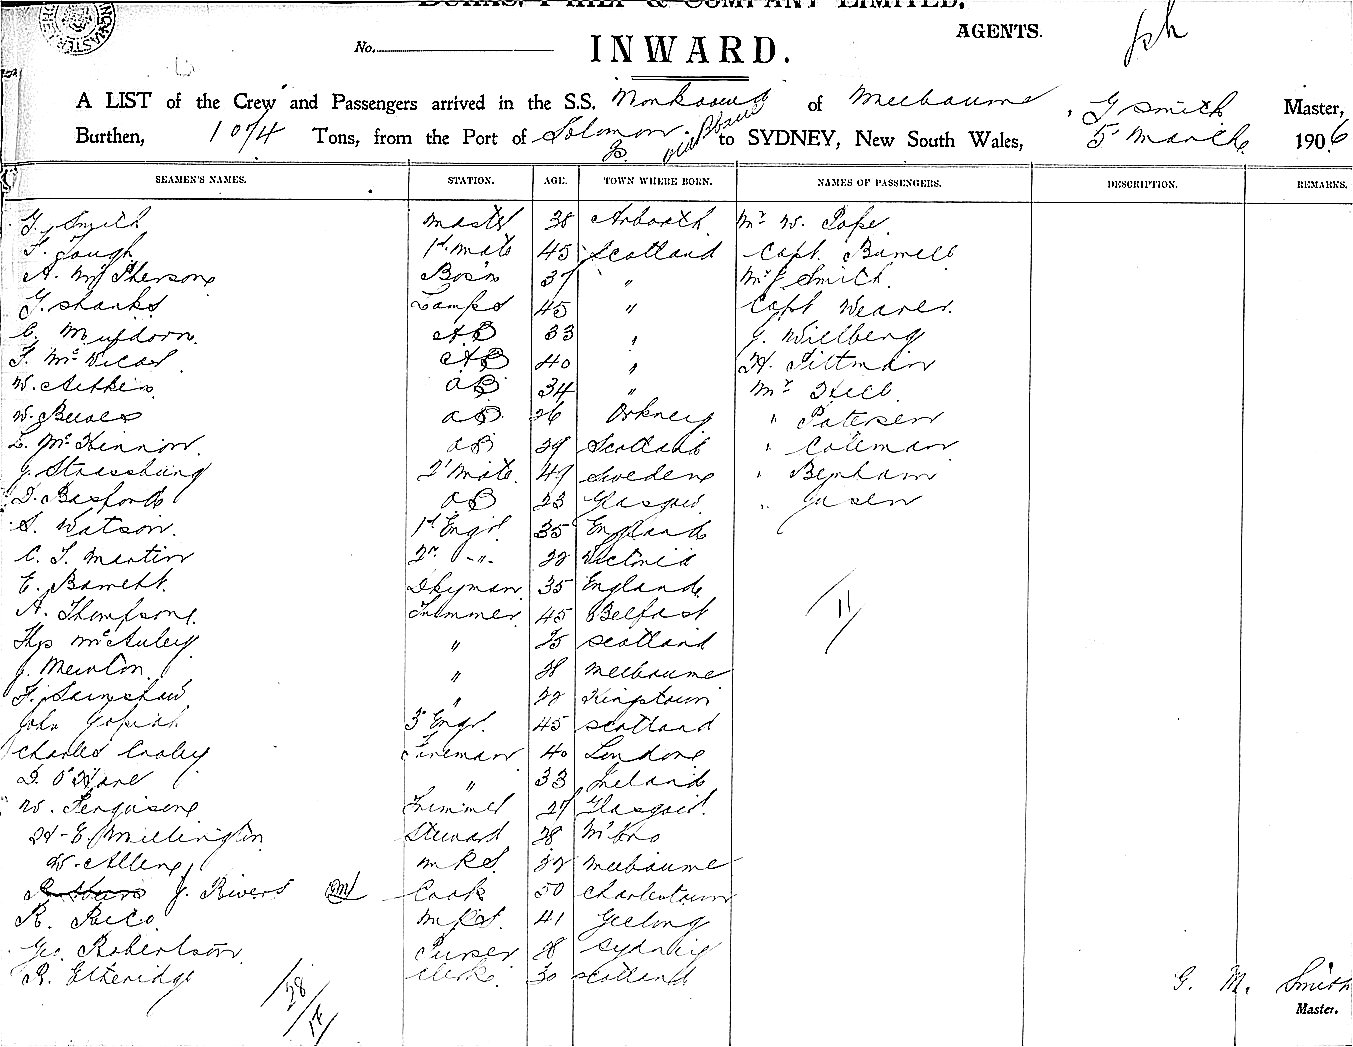 BURNS, PHILP & COMPANY LIMITED,
AGENTS.
No.
INWARD.
A LIST of the Crew and Passengers arrived in the S.S. of Melbourne, G Smith Master,
Burthen, 1074 Tons, from the Port of Solomon Is. via to SYDNEY, New South Wales, 5 March 1906
SEAMEN'S NAMES. STATION. AGE. TOWN WHERE BORN. NAMES OF PASSENGERS. DESCRIPTION. REMARKS.
G. Smith Master 38 Arboath Mr W. Pope
F. Gough 1st Mate 45 Scotland Capt. Burnell
A. McPherson Bos'n 37 " Mr J Smith
G. Shanks Lamps 45 " Capt Weaver
C. AB 33 " J. Willberg
AB 40 " H. Pittman
W. Aitken AB 34 " Mr Hill
W. AB 26 Orkney " Paterson
L. McKinnon AB 39 Scotland " Coleman
J. Strassburg 2d Mate 49 Sweden " Benham
D. Basford AB 23 Glasgow "
S. Watson 1st Engr. 35 England
C. J. Martin 2nd " Victoria
E. Barnett Dkyman 35 England
A. Thompson Trimmer 45 Belfast 11
Thos McAuley " 25 Scotland
J. " 28 Melbourne
F. " 22 Kingstown
John 3d Engr. 45 Scotland
Charles Fireman 40 London
D. O'Hare " 33 Ireland
W. Ferguson Trimmer 27 Glasgow
H. E. Millington Steward 38 M'bro
W. Allen M.R.S. 32 Melbourne
J. Rivers Cook 50 Charlestown
R. Rico M.R.S. 41 Geelong
Geo. Robertson Purser 28 Sydney
R. Etheridge Clerk 30 Scotland
28
G. M. Smith
Master.